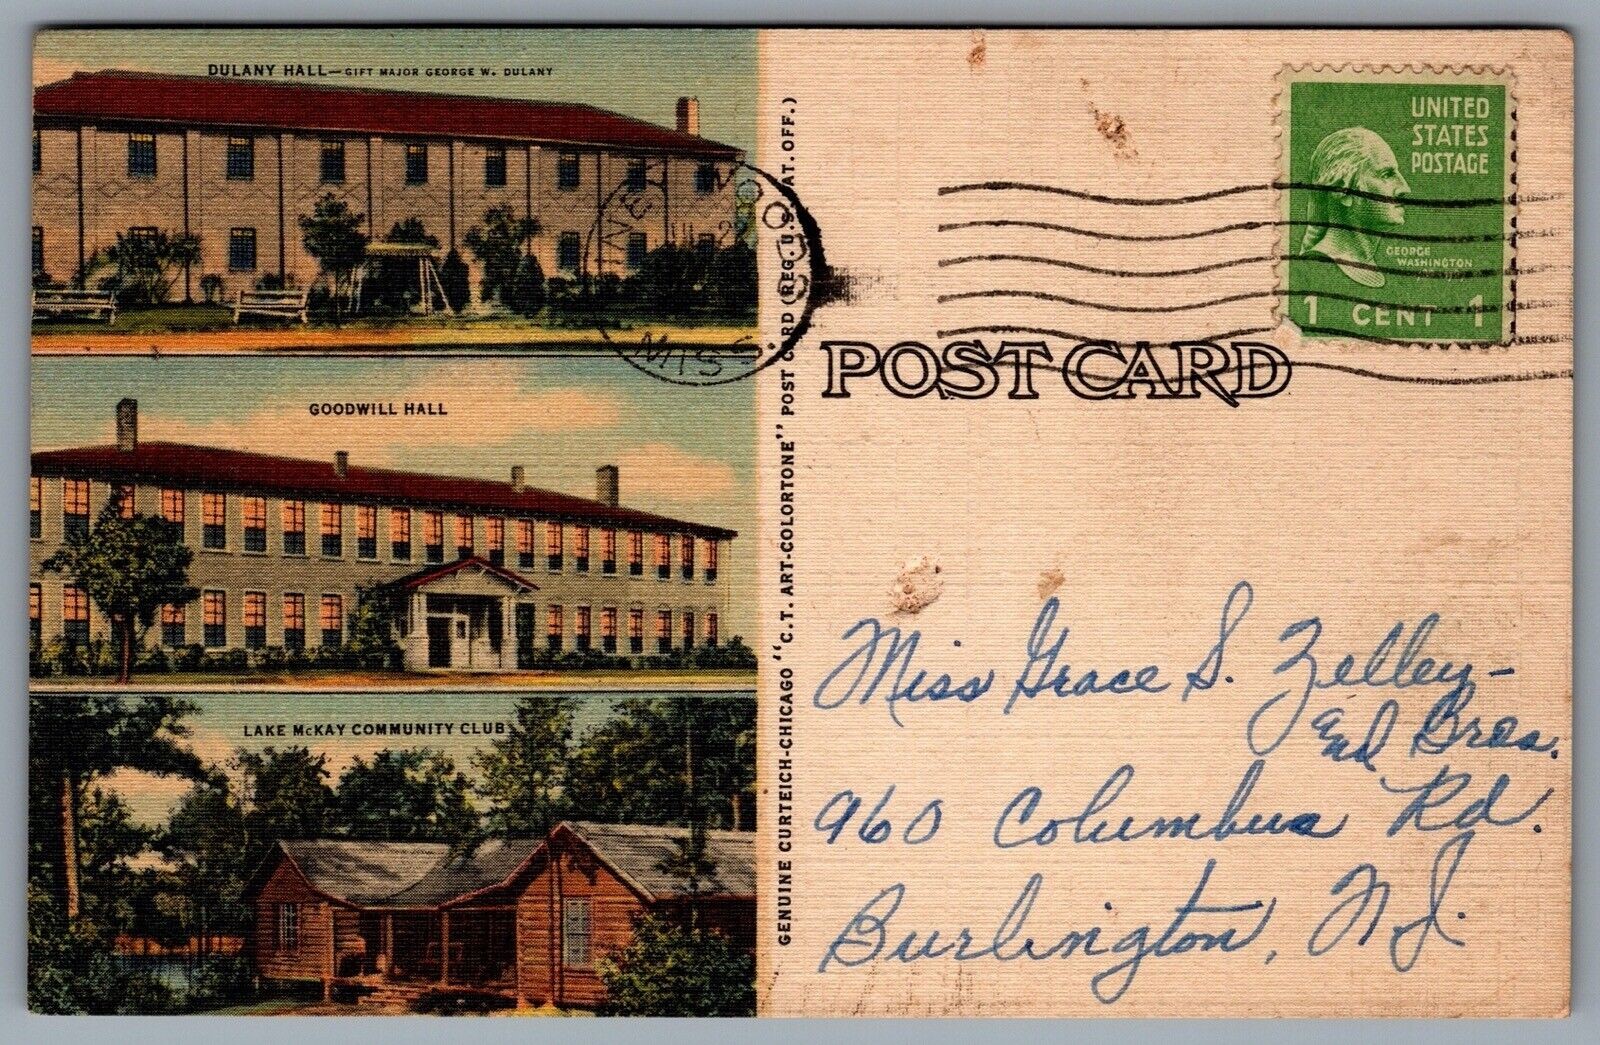 DULANY HALL—GIFT MAJOR GEORGE W. DULANY
GOODWILL HALL
LAKE McKAY COMMUNITY CLUB
GENUINE CURTEICH-CHICAGO "C.T. ART-COLORTONE" POST CARD (REG. U.S. PAT. OFF.)
PINEY WOODS
MISS.
UNITED
STATES
POSTAGE
GEORGE
WASHINGTON
1 CENT 1
POST CARD
Miss Grace S. Zelley-
and Bros.
960 Columbus Rd.
Burlington, N.J.